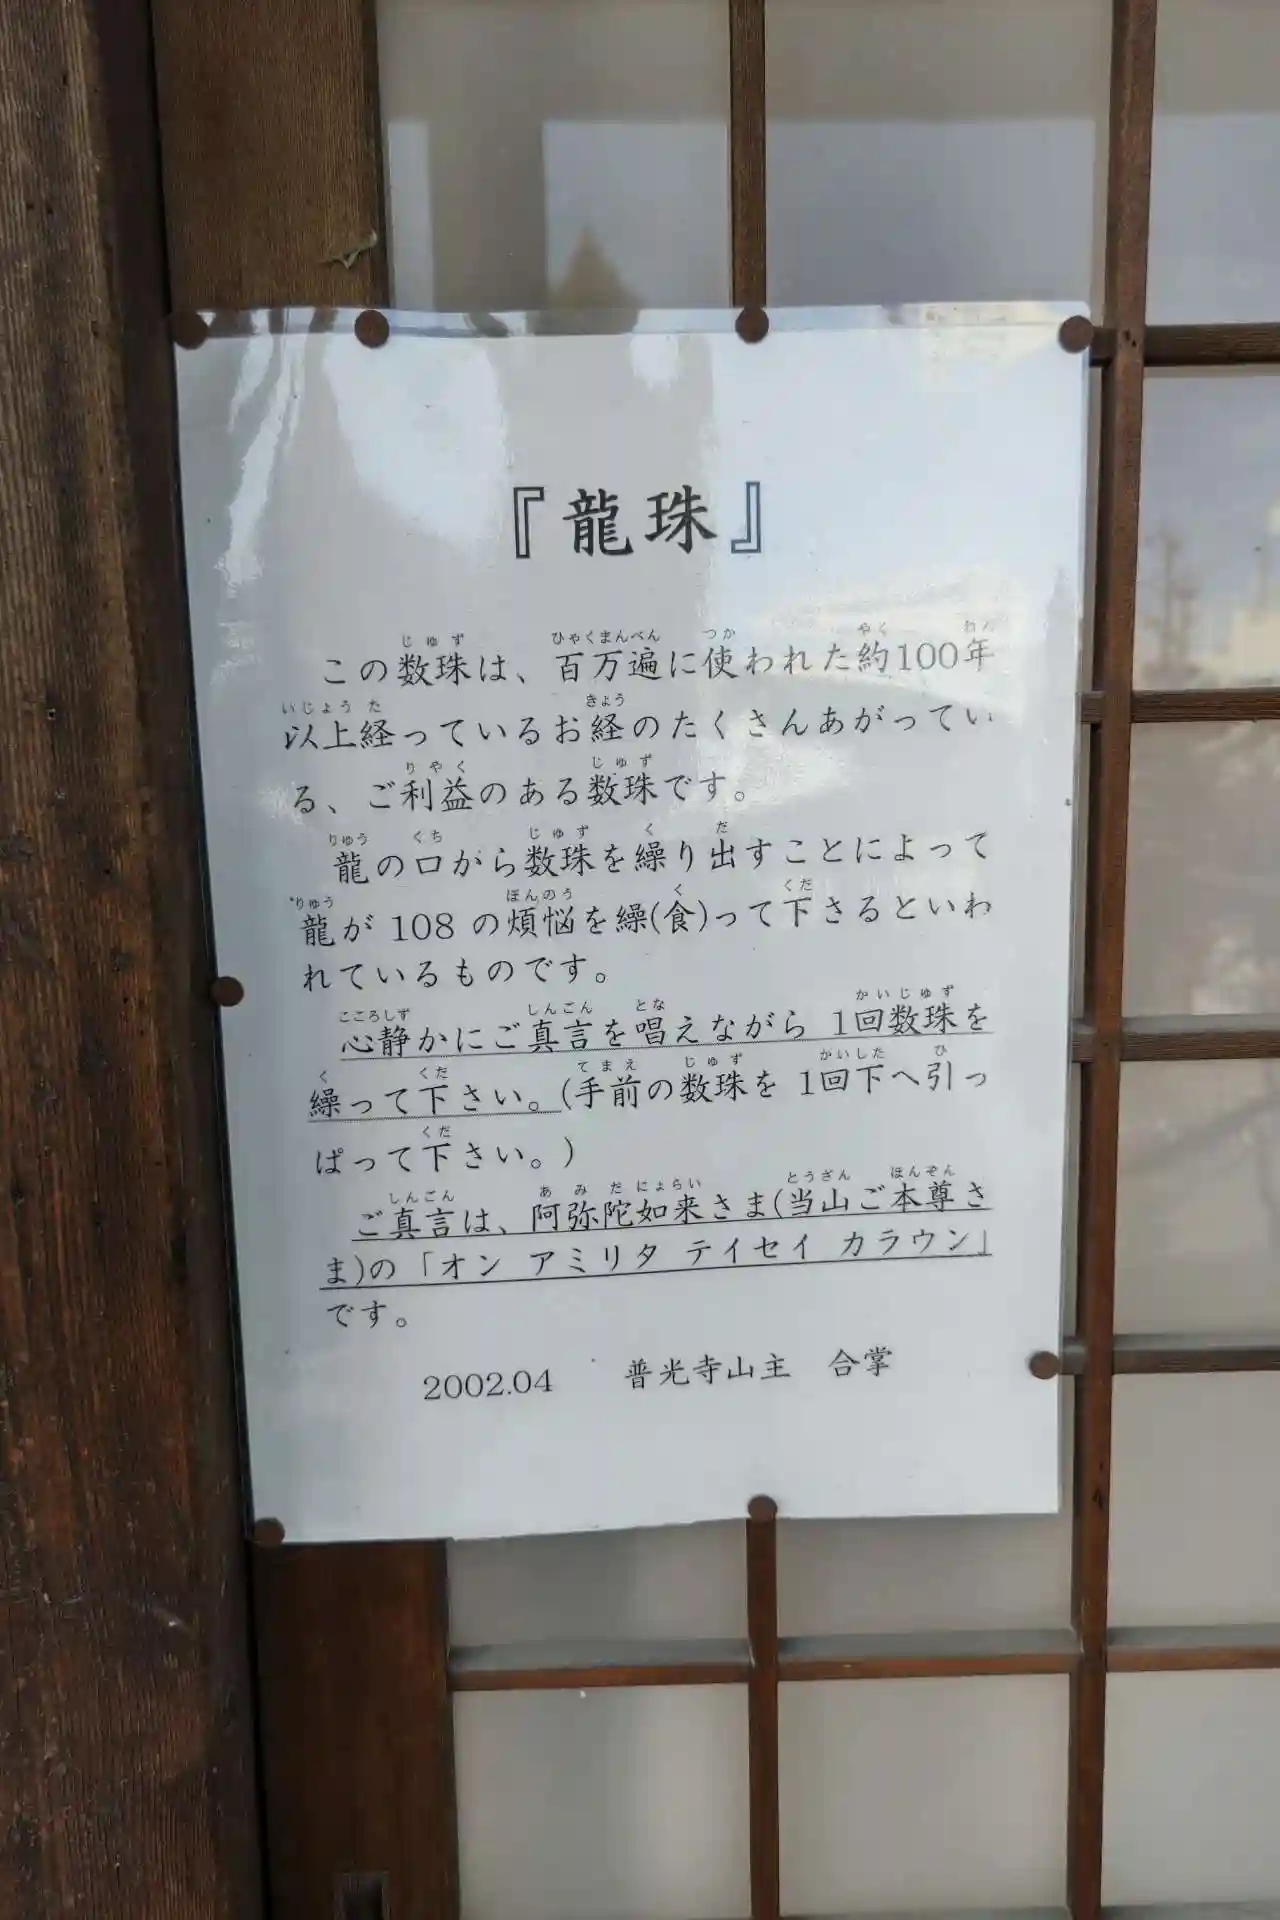 『龍珠』
この数珠は、百万遍に使われた約100年
以上経っているお経のたくさんあがってい
る、ご利益のある数珠です。
龍の口から数珠を繰り出すことによって
龍が 108 の煩悩を繰(食)って下さるといわ
れているものです。
心静かにご真言を唱えながら 1回数珠を
繰って下さい。(手前の数珠を 1回下へ引っ
ぱって下さい。)
ご真言は、阿弥陀如来さま(当山ご本尊さ
ま)の「オン アミリタ テイセイ カラウン」
です。
2002.04 普光寺山主 合掌